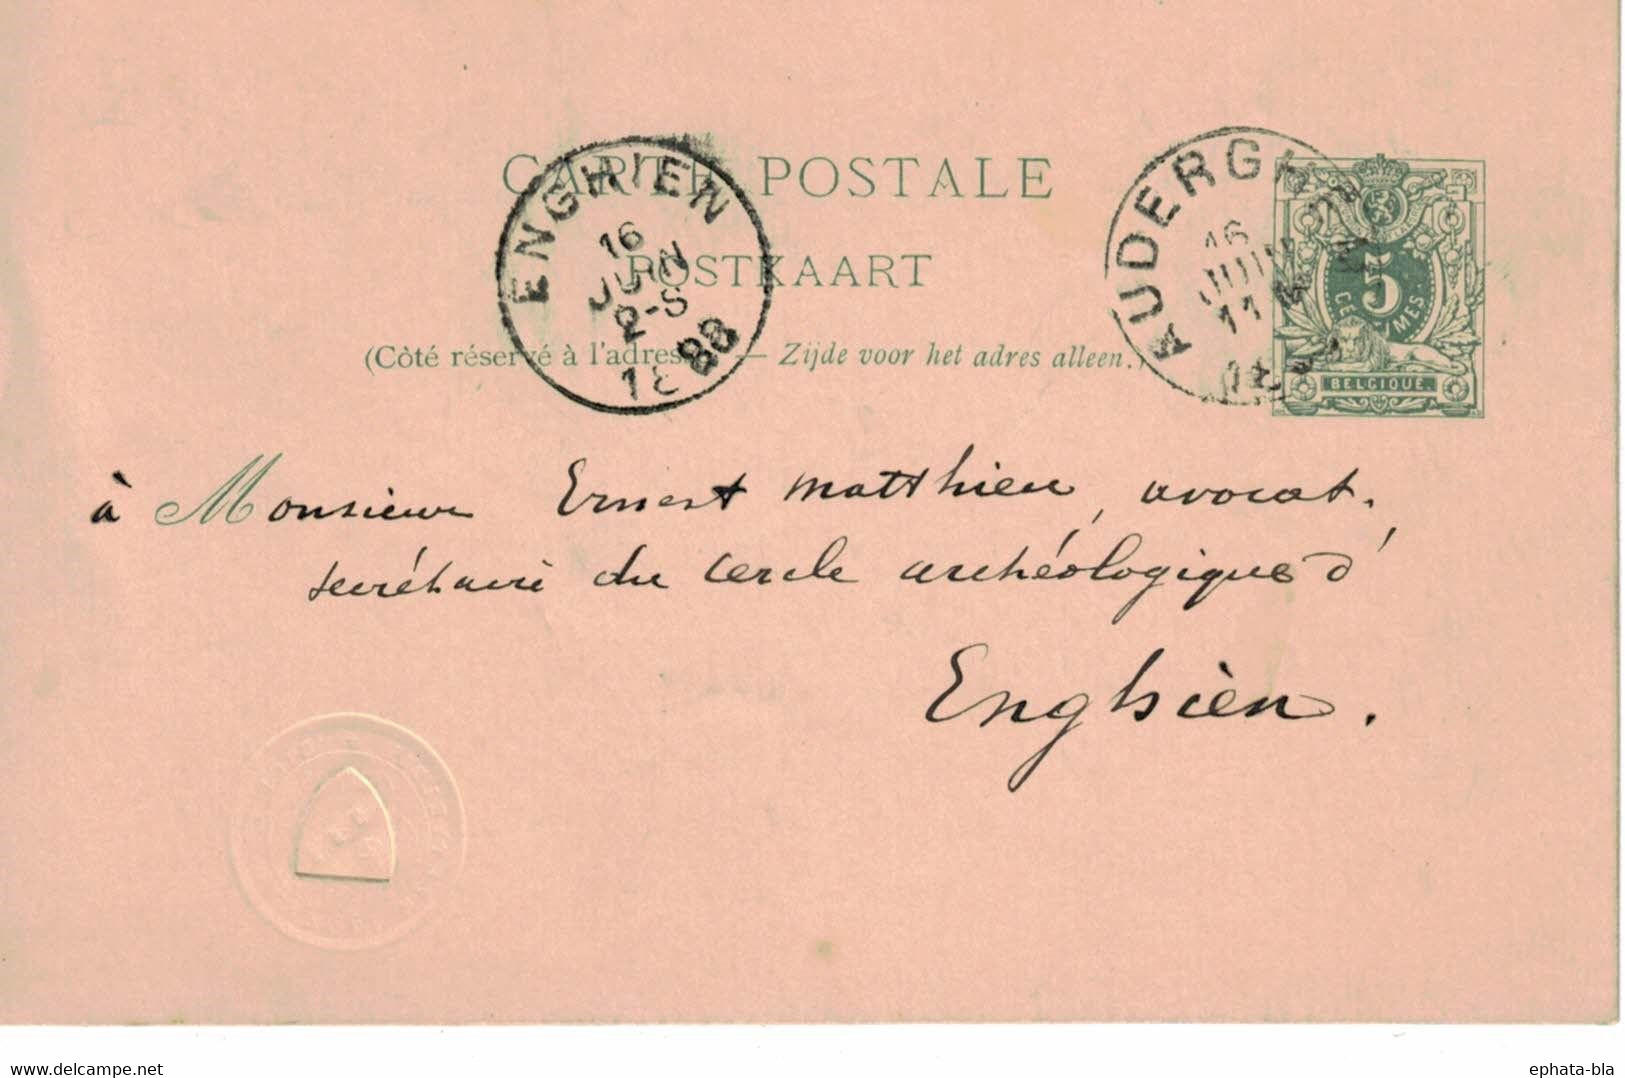 CARTE POSTALE
POSTKAART
(Côté réservé à l'adresse. — Zijde voor het adres alleen.)
ENGHIEN
16
JUIN
2-S
1888
AUDERGHEM
16
JUIN
11
5
CENTIMES
BELGIQUE.
à Monsieur Ernest Matthieu, avocat,
secrétaire du cercle archéologique d'
Enghien.
www.delcampe.net
ephata-bla